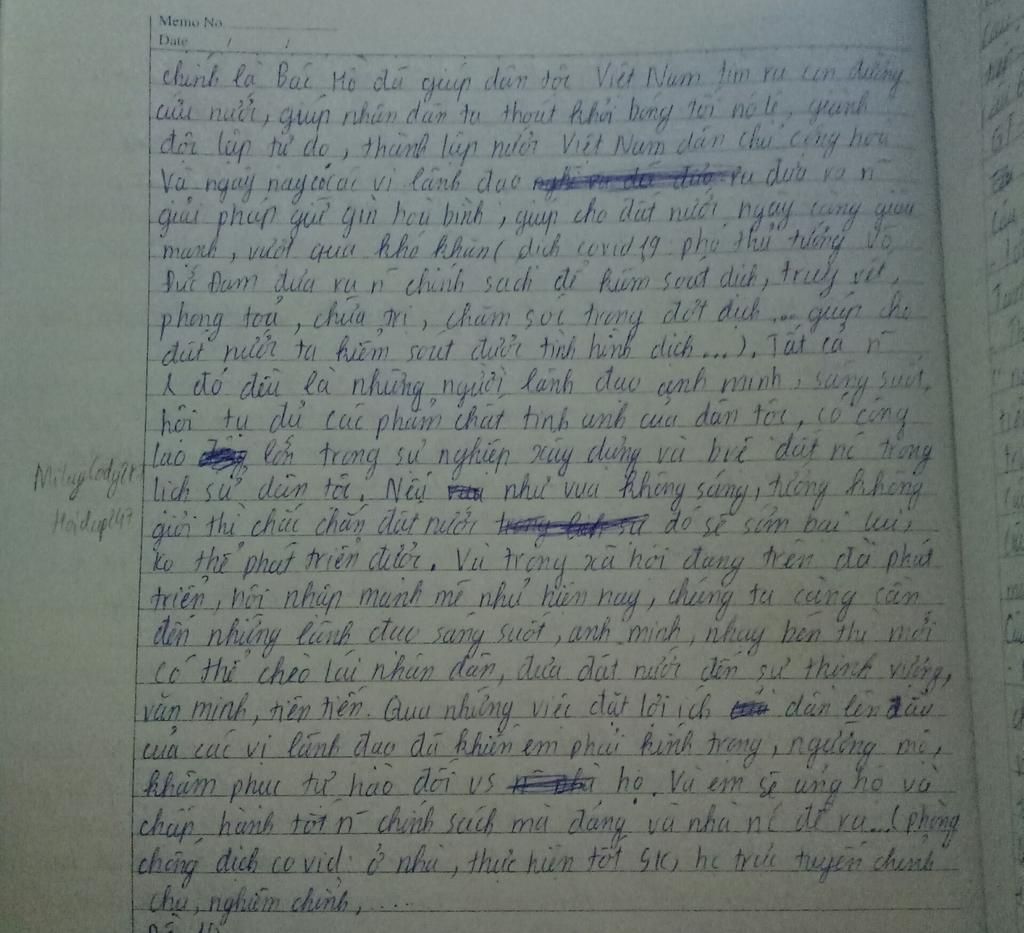 Memo No.
Date / /
chính là Bác Hồ đã giúp dân tộc Việt Nam tìm ra con đường
cứu nước, giúp nhân dân ta thoát khỏi bóng tối nô lệ, giành
độc lập tự do, thành lập nước Việt Nam dân chủ cộng hoà
Và ngày nay có các vị lãnh đạo đưa ra n~
giải pháp giữ gìn hoà bình, giúp cho đất nước ngày càng giàu
mạnh, vượt qua khó khăn ( dịch covid 19 phó thủ tướng Vũ
Đức Đam đưa ra n~ chính sách để kiểm soát dịch, truy vết,
phong toả, chữa trị, chăm sóc trong đợt dịch ... giúp cho
đất nước ta kiểm soát được tình hình dịch...). Tất cả n~
đó đều là những người lãnh đạo anh minh, sáng suốt,
hội tụ đủ các phẩm chất tinh anh của dân tộc, có công
lao lớn trong sự nghiệp xây dựng và bvệ đất nc trong
lịch sử dân tộc. Nếu như vua không sáng, tướng không
giỏi thì chắc chắn đất nước đó sẽ sớm bại lụi,
ko thể phát triển được. Và trong xã hội đang trên đà phát
triển, hội nhập mạnh mẽ như hiện nay, chúng ta càng cần
đến những lãnh đạo sáng suốt, anh minh, nhạy bén thì mới
có thể chèo lái nhân dân, đưa đất nước đến sự thịnh vượng,
văn minh, tiên tiến. Qua những việc đặt lợi ích dân lên đầu
của các vị lãnh đạo đã khiến em phải kính trọng, ngưỡng mộ,
khâm phục tự hào đối vs họ. Và em sẽ ủng hộ và
chấp hành tốt n~ chính sách mà đảng và nhà nc đề ra...( phòng
chống dịch covid: ở nhà, thực hiện tốt 5K, hc trực tuyến chỉnh
chu, nghiêm chỉnh, ....
Hoidap247